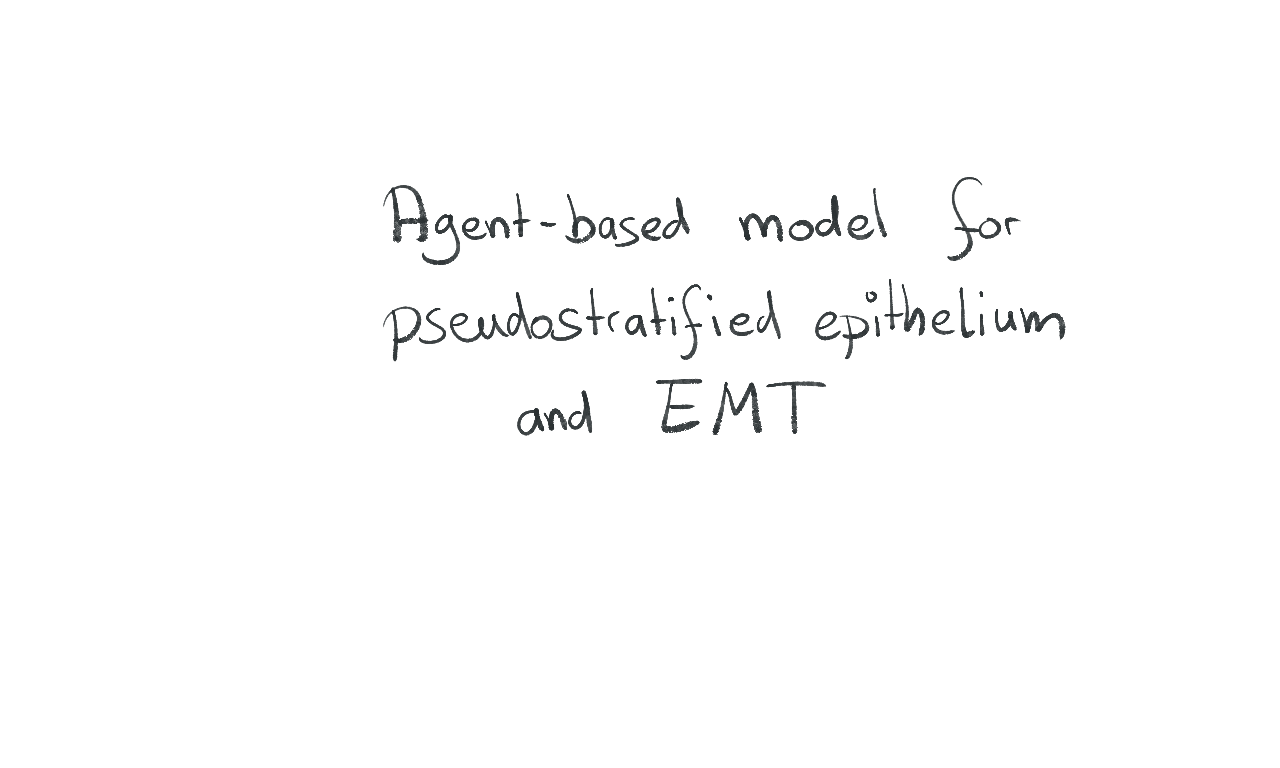 Agent-based model for
pseudostratified epithelium
and EMT